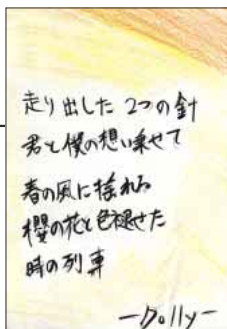 走り出した 2つの針
君と僕の想い乗せて
春の風に揺れる
桜の花と色褪せた
時の列車
—Dolly—